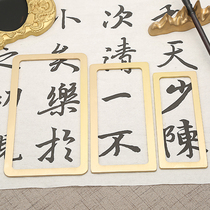 天少陳
次清一不
矣樂於